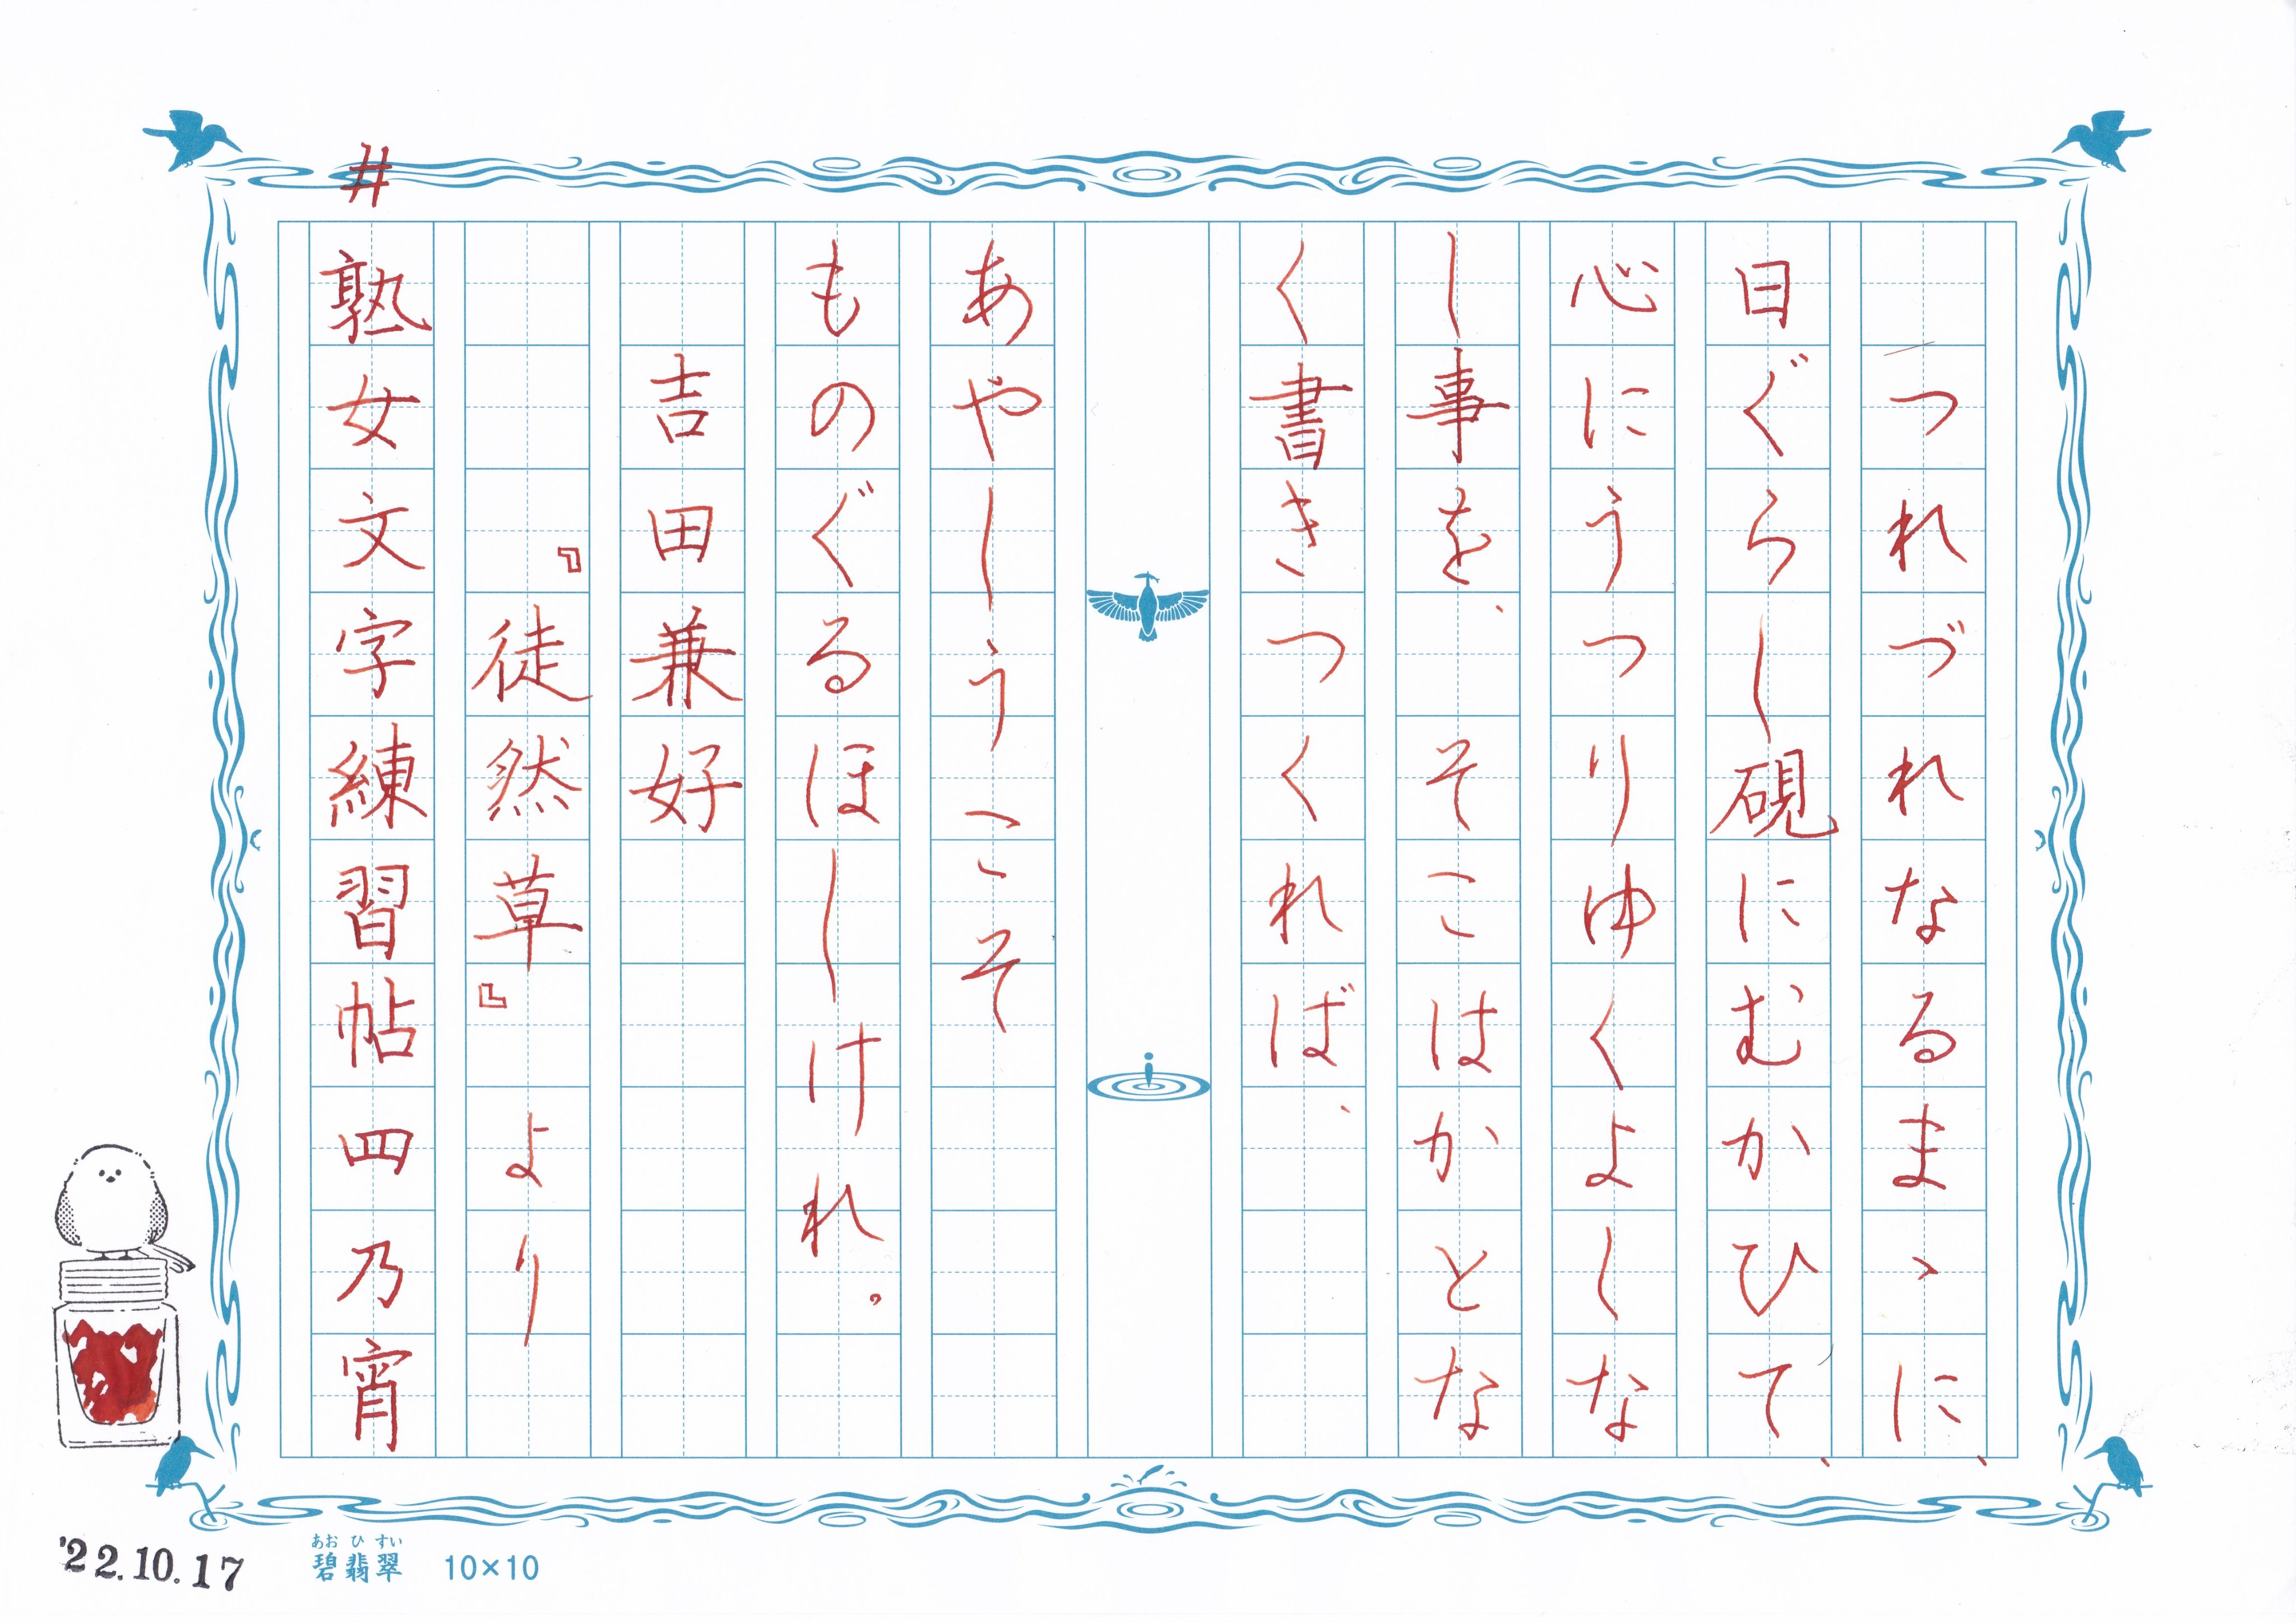 つれづれなるまゝに、
日ぐらし硯にむかひて、
心にうつりゆくよしな
し事を、そこはかとな
く書きつくれば、
あやしうこそ
ものぐるほしけれ。
吉田兼好
『徒然草』より
#塾女文字練習帖四乃宵
'22.10.17
あおひすい
碧翡翠 10×10